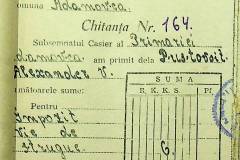 omuna Adamovca
Chitanța Nr. 164.
Subsemnatul Casier al Primariei
damovca am primit dela Pustovoit
Alexander V.
rmătoarele sume:
SUMA
B. K. K. S.
Pentru
Impozit
Vie de
strugure 6